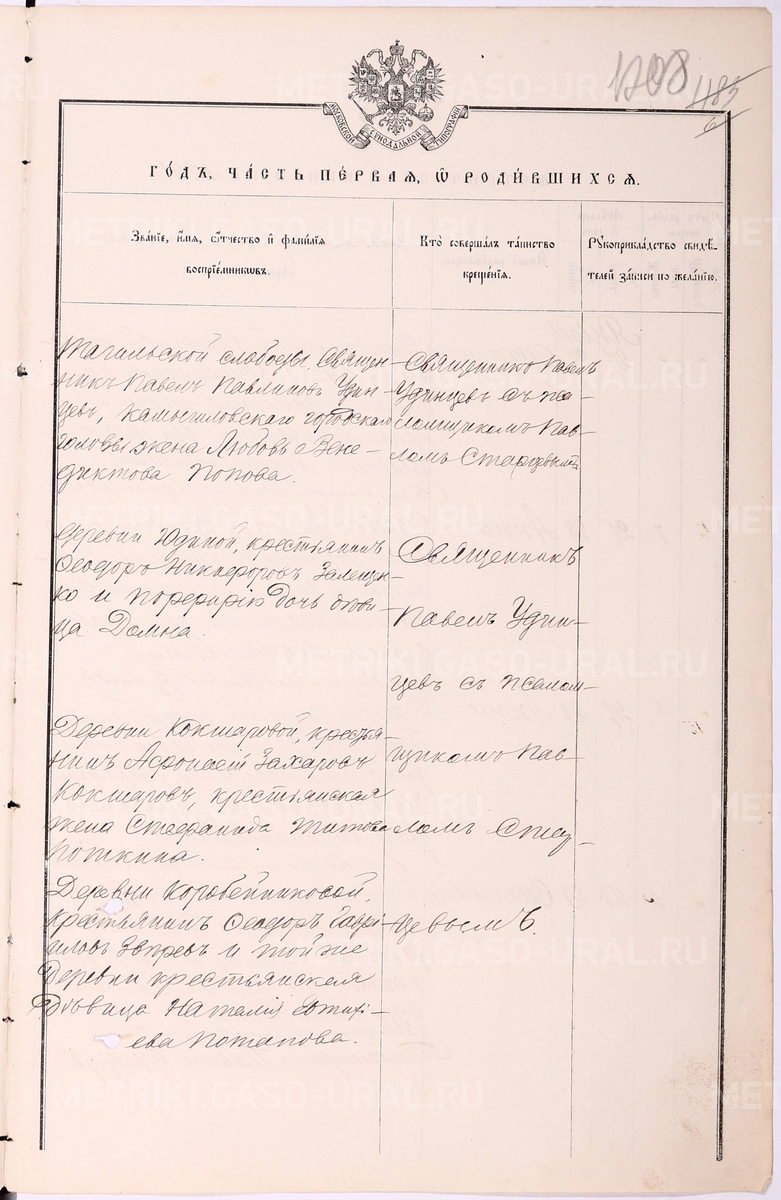 1208
1185
6
МОСКОВСКОЙ СѴНОДАЛЬНОЙ ТИПОГРАФІИ
ГО́ДЪ, ЧА́СТЬ ПЕ́РВАЯ, Ѡ РОДИ́ВШИХСЯ.
Зва́нїе, и҆́мѧ, ѻ҆́тчество и҆ фами́лїѧ
воспрїе́мникѡвъ.
Кто̀ соверша́лъ та́инство
креще́нїѧ.
Рꙋкоприкла́дство свидѣ́-
телей за́писи по жела́нїю.
Тагильской слободы Священ-
никъ Павелъ Павлиновъ Удин-
цевъ, Камышловскаго городскаго
головы жена Любовь Вене-
диктова Попова.
Священникъ Павелъ
Удинцевъ съ пса-
ломщикомъ Пав-
ломъ Старцевымъ
Деревни Юдиной, крестьянинъ
Ѳеодоръ Никифоровъ
и Порфирія дочь дѣви-
ца Домна.
Священникъ
Павелъ Удин-
цевъ съ псалом-
Деревни Кокшаровой, крестья-
нинъ Аѳонасій Захаровъ
Кокшаровъ, крестьянская
жена Стефанида Титова
Поткина.
щикомъ Пав-
ломъ
Деревни Коробейниковой,
крестьянинъ Ѳеодоръ Гаврі-
иловъ Звѣревъ и той же
деревни крестьянская
дѣвица Наталія
ева Потапова.
цевымъ.
METRIKI.GASO-URAL.RU